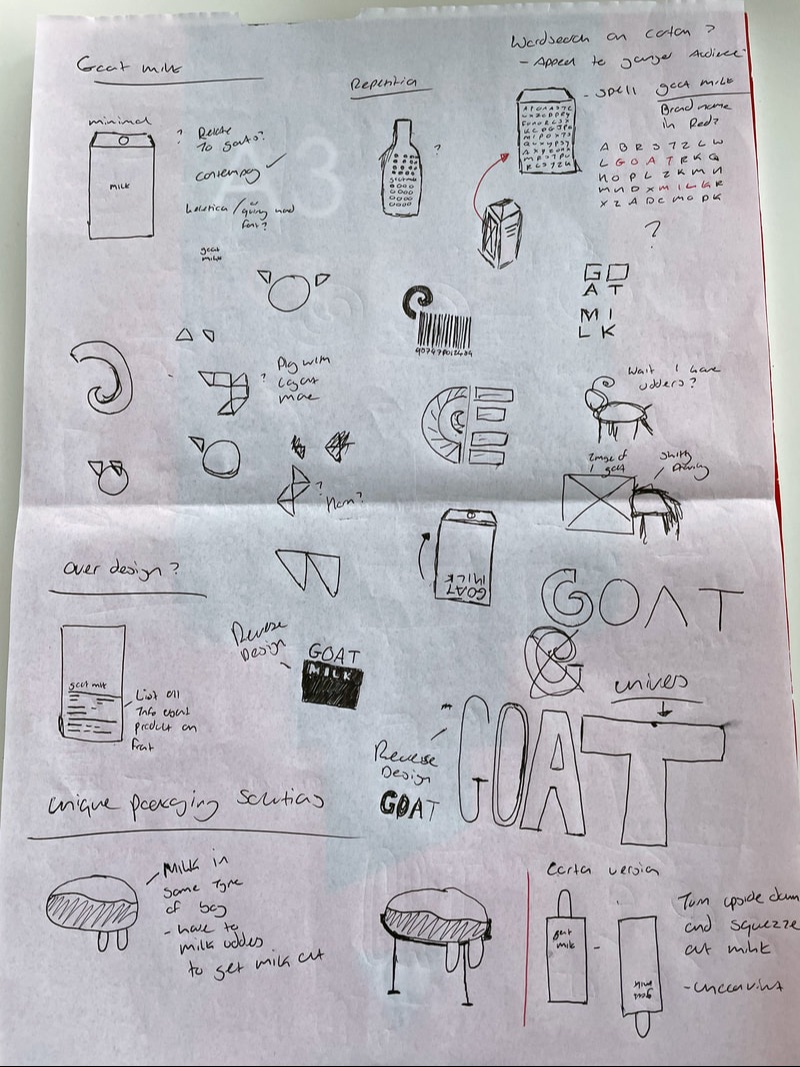 Goat milk
minimal
MILK
? Relate
To goats?
contempory
helvetica / or
quirky hand
font?
goat
milk
Repention
?
Wordsearch on carton ?
- Appeal to younger Audience
- spell goat milk
Brand name
in Red?
A B R S T Z L W
L G O A T R K Q
N O P L Z K M N
M N D X M I L K R
X Z A D C M G P K
?
G O
A T
M I
L K
Wait I have
udders?
Image of
1 goat
Shitty
drawing
? Play with
layout
more
? Horn?
GOAT
MILK
Over design?
goat milk
List all
Info about
product on
front
Reverse
Design
GOAT
MILK
GOAT
G
univers
GOAT
Reverse
Design
GOAT
unique packaging solutions
Milk in
some type
of bag
- have to
milk udders
to get milk out
Carton version
goat
milk
-
goat
milk
Turn upside down
and squezze
out milk